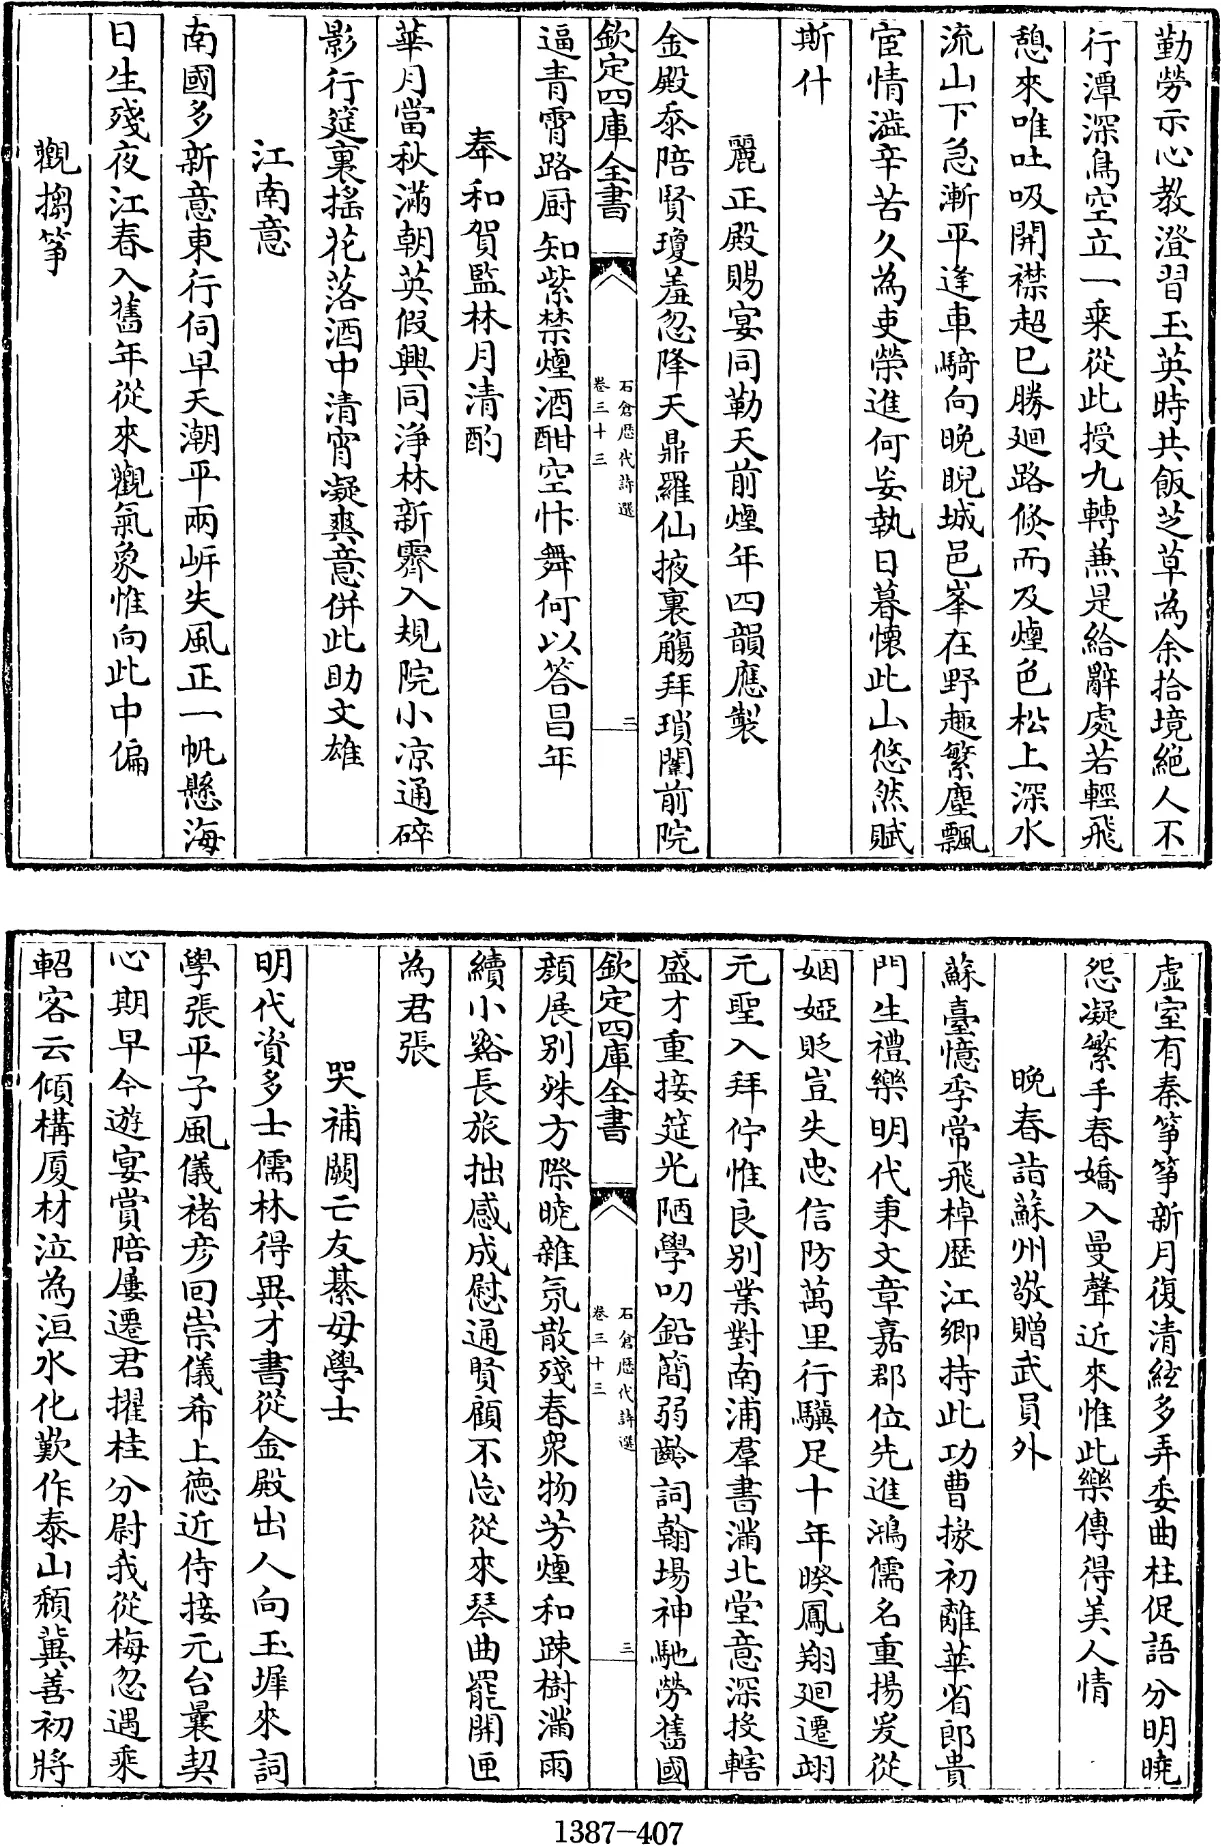 勤勞示心教澄習玉英時共飯芝草為余拾境絕人不
行潭深鳥空立一乘從此授九轉兼是給辭處若輕飛
憩來唯吐吸開襟超已勝廻路倐而及煙色松上深水
流山下急漸平逢車騎向晚睨城邑峯在野趣繁塵飄
宦情澁辛苦久為吏榮進何妄執日暮懷此山悠然賦
斯什
麗正殿賜宴同勒天前煙年四韻應製
金殿忝陪賢瓊羞忽降天鼎羅仙掖裏觴拜瑣闈前院
欽定四庫全書
石倉歴代詩選
卷三十三
二
逼青霄路厨知紫禁煙酒酣空忭舞何以答昌年
奉和賀監林月清酌
華月當秋滿朝英假興同淨林新霽入規院小凉通碎
影行筵裏搖花落酒中清宵凝爽意併此助文雄
江南意
南國多新意東行伺早天潮平兩㟁失風正一帆懸海
日生殘夜江春入舊年從來觀氣象惟向此中偏
觀搊箏
虛室有秦箏箏新月復清絃多弄委曲柱促語分明曉
怨凝繁手春嬌入曼聲近來惟此樂傳得美人情
晚春詣蘇州敬贈武員外
蘇臺憶季常飛棹歴江鄉持此功曹掾初離華省郎貴
門生禮樂明代秉文章嘉郡位先進鴻儒名重揚爰從
姻婭貶豈失忠信防萬里行驥足十年暌鳳翔廻遷翊
元聖入拜佇惟良別業對南浦羣書滿北堂意深投轄
盛才重接筵光陋學叨鉛簡弱齡詞翰場神馳勞舊國
欽定四庫全書
石倉歴代詩選
卷三十三
三
顔展別殊方際曉雜氛散殘春衆物芳煙和疎樹滿雨
續小谿長旅拙感成慰通賢顧不忘從來琴曲罷開匣
為君張
哭補闕亡友綦毋學士
明代資多士儒林得異才書從金殿出人向玉墀來詞
學張平子風儀褚彥回崇儀希上德近侍接元台曩契
心期早今遊宴賞陪屢遷君擢桂分尉我從梅忽遇乘
軺客云傾構厦材泣為洹水化歎作泰山頽冀善初將
1387-407